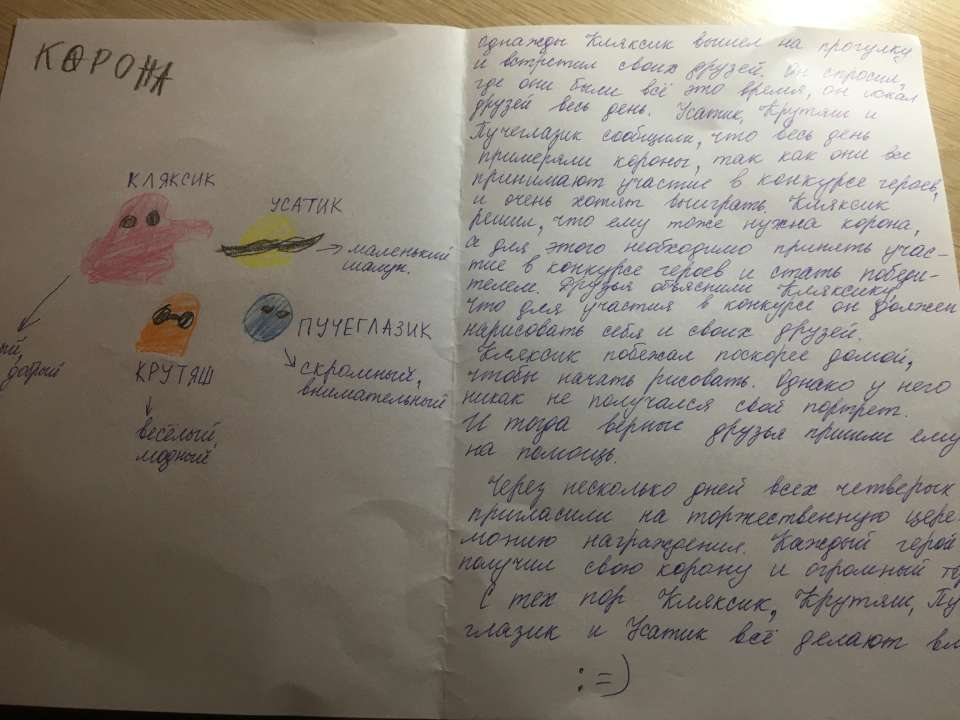 КОРОНА
КЛЯКСИК
УСАТИК
маленький
шалун.
добрый
ПУЧЕГЛАЗИК
скромный,
внимательный
КРУТЯШ
весёлый,
модный
Однажды Кляксик вышел на прогулку
и встретил своих друзей. Он спросил,
где они были всё это время, он искал
друзей весь день. Усатик, Крутяш и
Пучеглазик сообщили, что весь день
примеряли короны, так как они все
принимают участие в конкурсе героев,
и очень хотят выиграть. Кляксик
решил, что ему тоже нужна корона,
а для этого необходимо принять учас-
тие в конкурсе героев и стать победи-
телем. Друзья объяснили Кляксику,
что для участия в конкурсе он должен
нарисовать себя и своих друзей.
Кляксик побежал поскорее домой,
чтобы начать рисовать. Однако у него
никак не получался свой портрет.
И тогда верные друзья пришли ему
на помощь.
Через несколько дней всех четверых
пригласили на торжественную цере-
монию награждения. Каждый герой
получил свою корону и огромный то
С тех пор Кляксик, Крутяш, Пу
глазик и Усатик всё делают вм
:=)